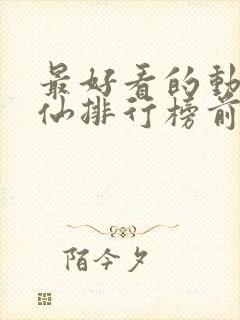 最好看的動
仙排行榜前
陌今夕